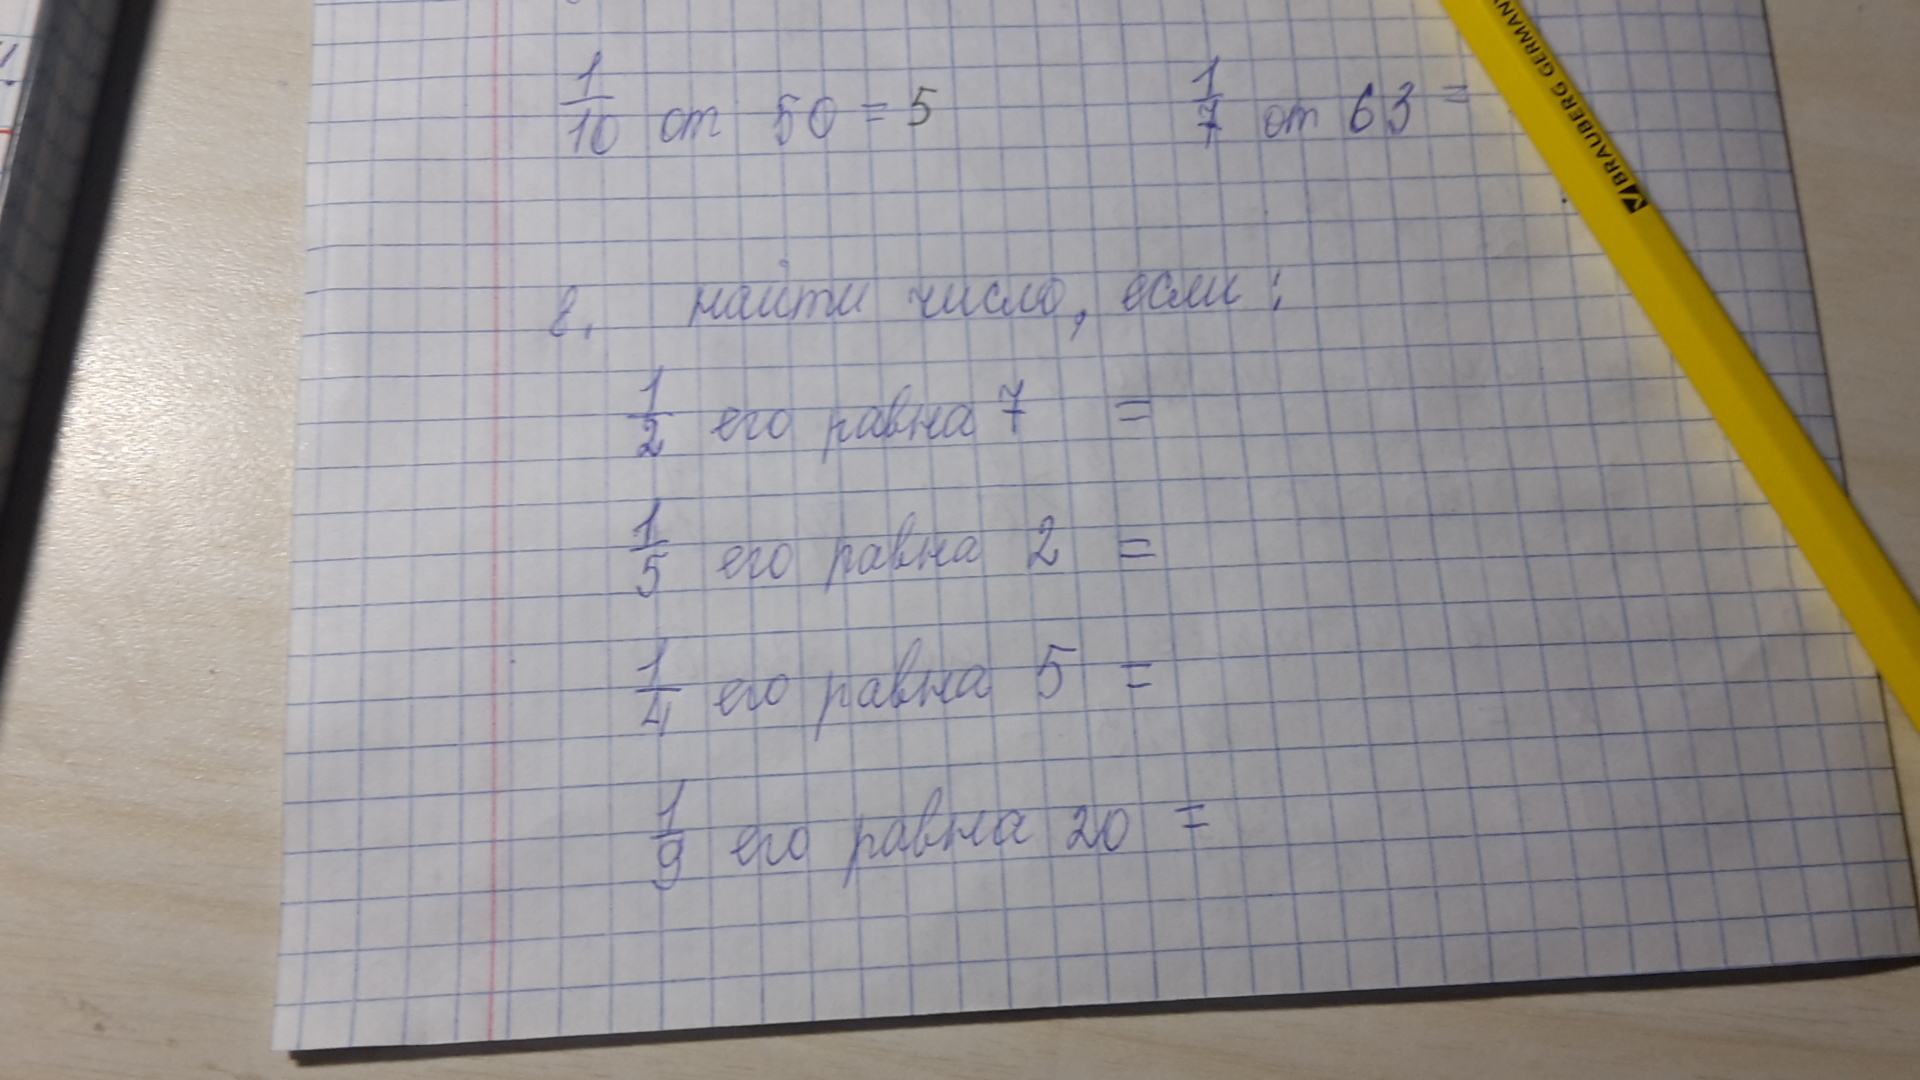 1/10 от 50 = 5
1/7 от 63 =
BRAUBERG GERMANY
8. найти число, если:
1/2 его равна 7 =
1/5 его равна 2 =
1/4 его равна 5 =
1/9 его равна 20 =